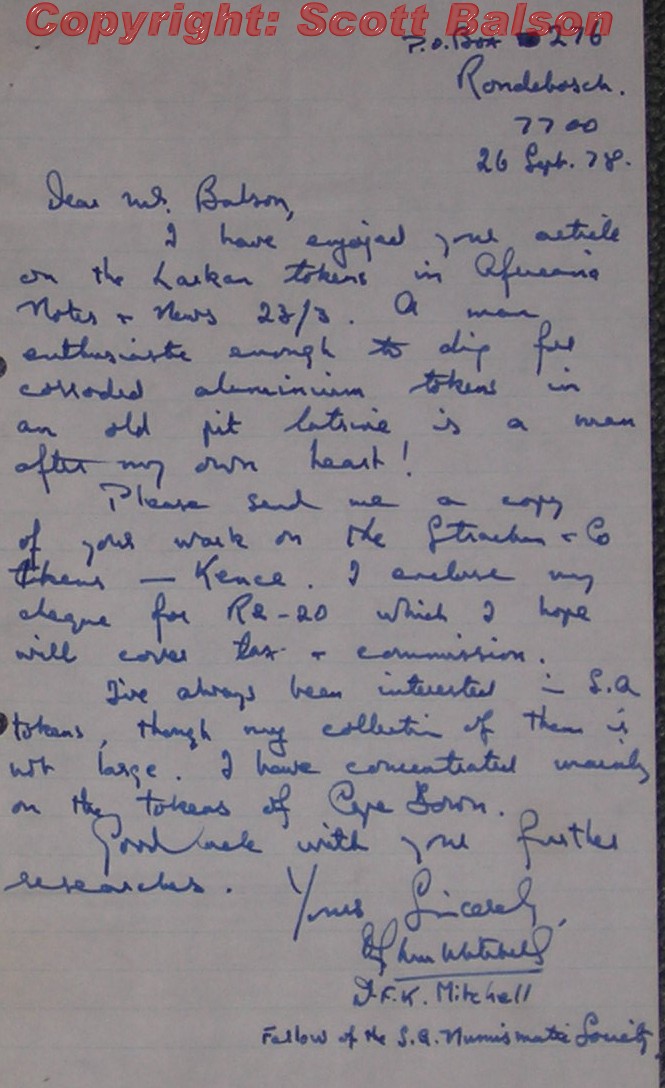 Copyright: Scott Balson
P.O. Box 276
Rondebosch.
7700
26 Sept. 78.
Dear Mr. Balson,
I have enjoyed your article
on the Larkan tokens in Africana
Notes + News 23/3. A man
enthusiastic enough to dig for
corroded aluminium tokens in
an old pit latrine is a man
after my own heart!
Please send me a copy
of your work on the Strachan + Co
tokens —. I enclose my
cheque for R2-20 which I hope
will cover tax + commission.
I've always been interested in S.A
tokens, though my collection of them is
not large. I have concentrated mainly
on the tokens of Cape Town.
Good luck with your further
researches.
Yours Sincerely,
D.F.K. Mitchell
Fellow of the S.A. Numismatic Society